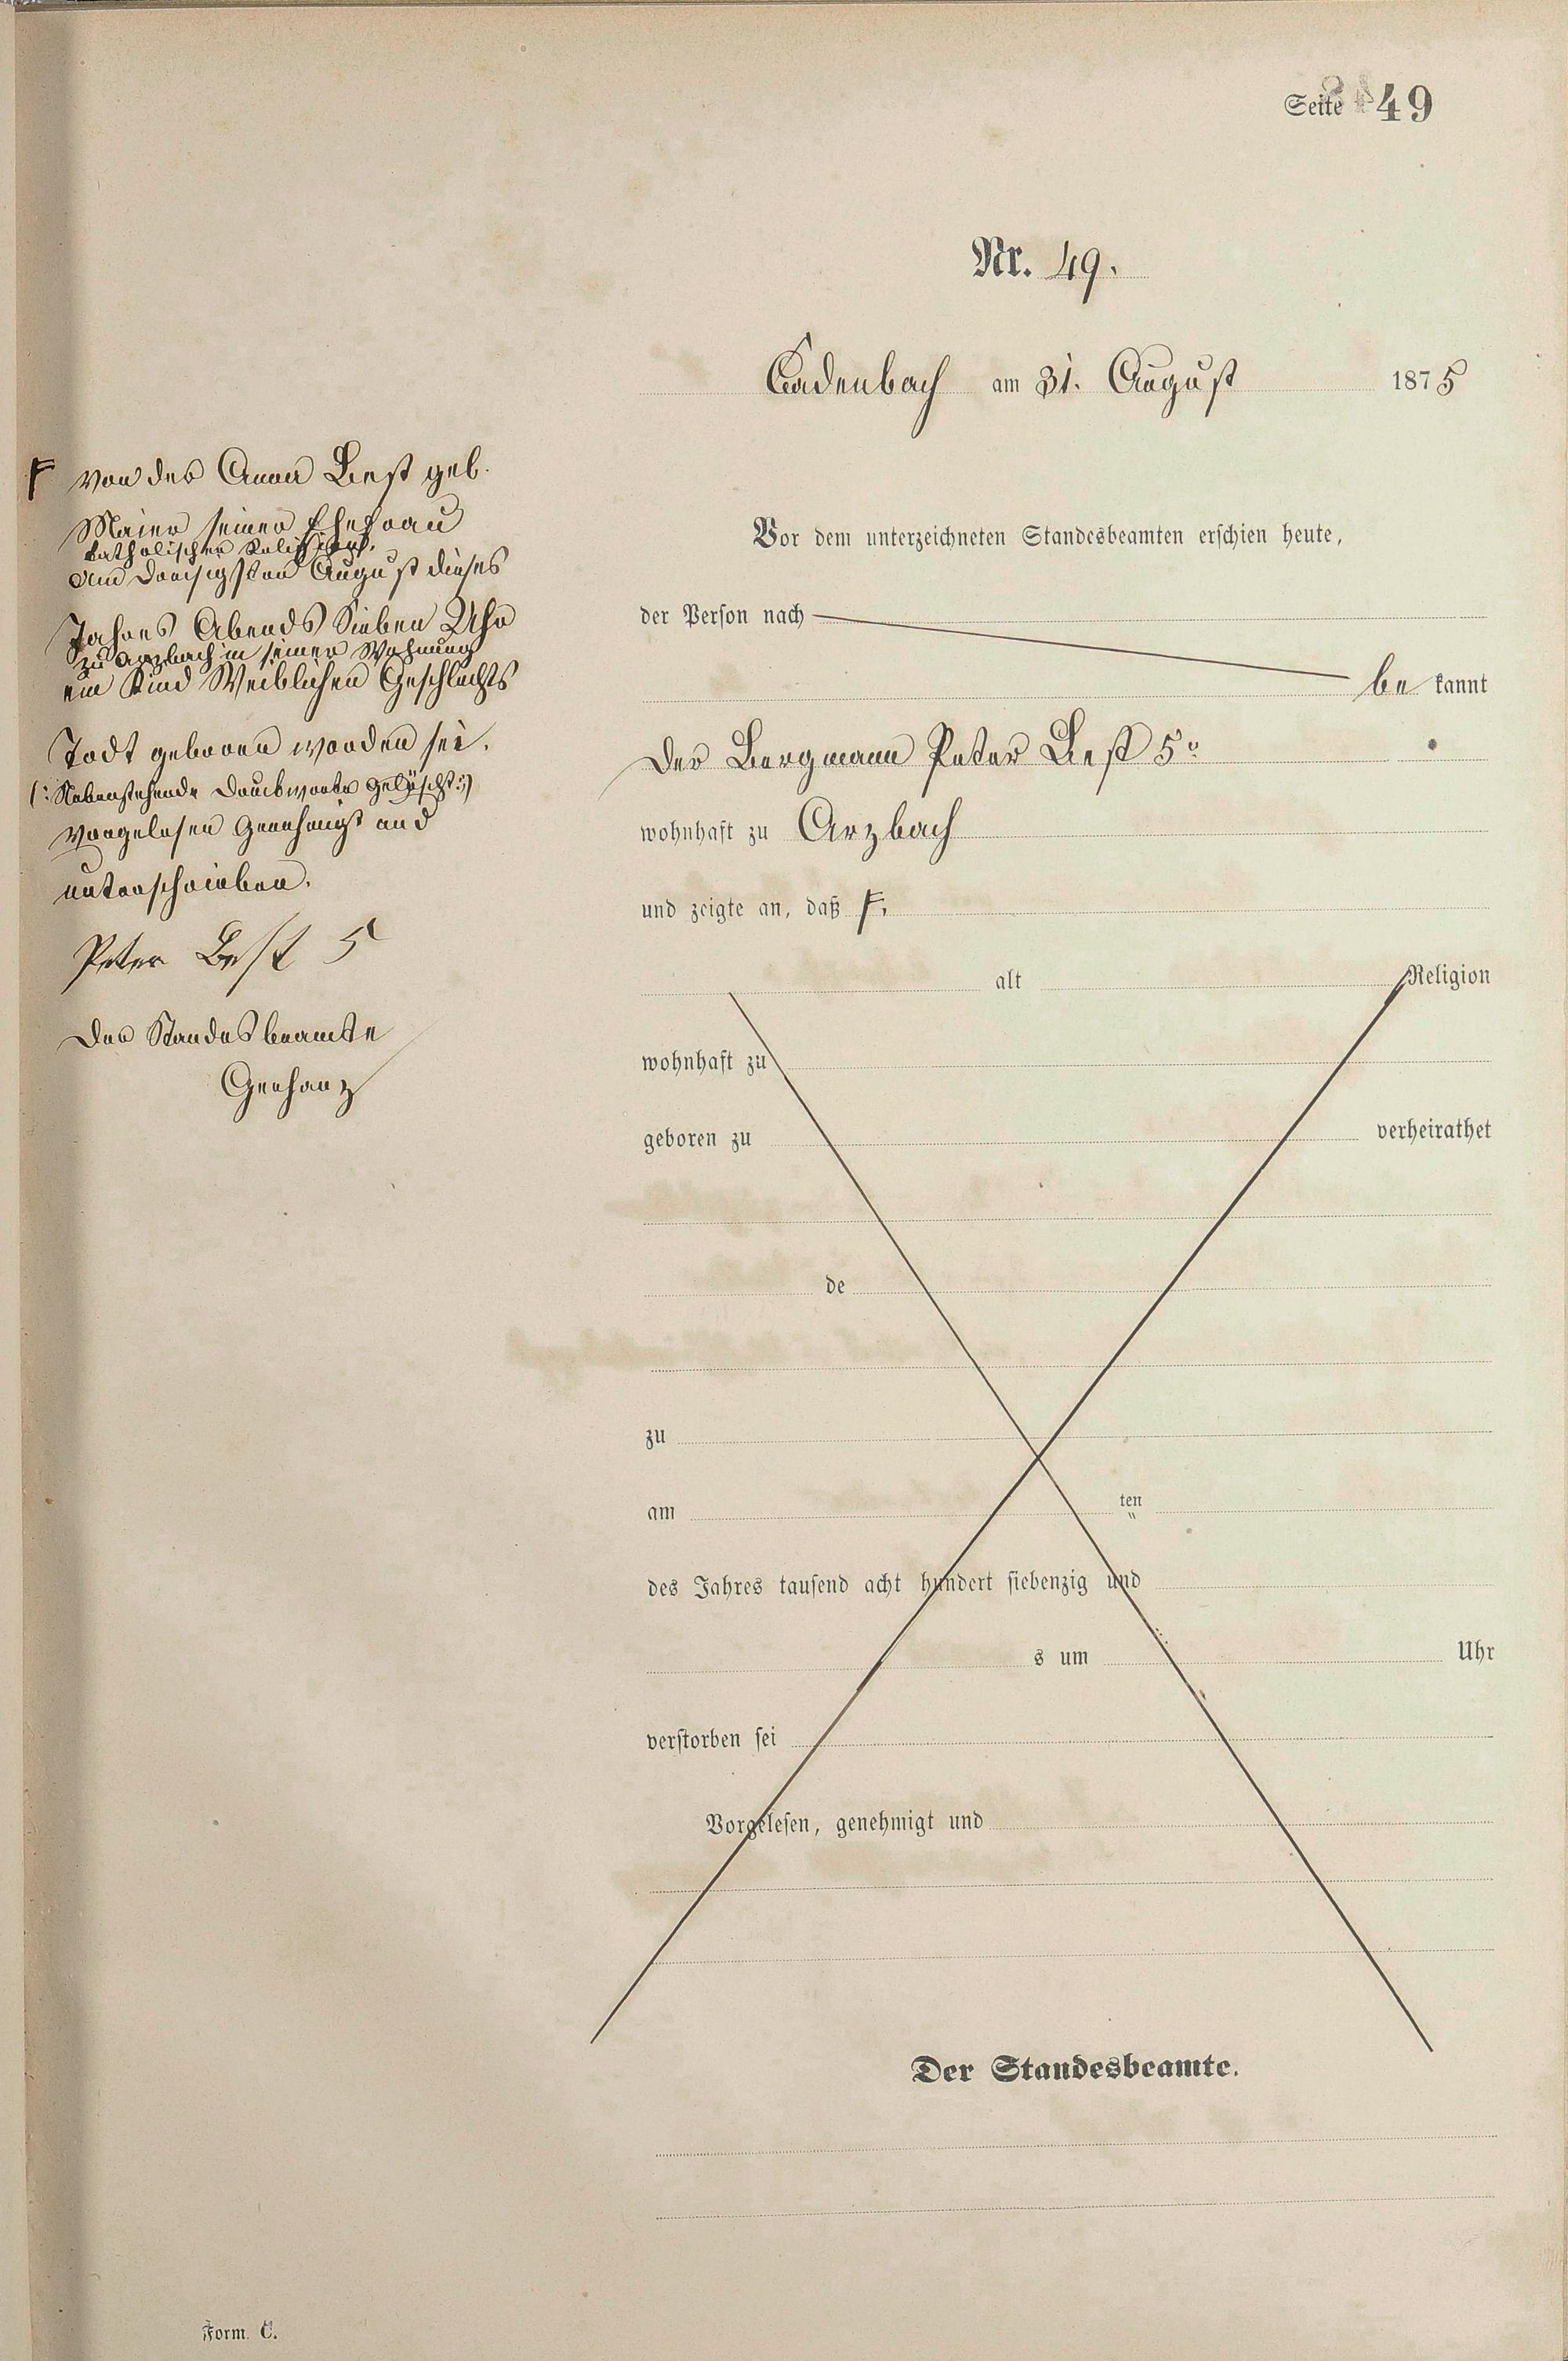 Seite 49
Nr. 49.
Cadenbach am 31. August 1875
Vor dem unterzeichneten Standesbeamten erschien heute,
der Person nach
be kannt
Der Bergmann Peter Best 5r
wohnhaft zu Arzbach
und zeigte an, daß F.
F von der Anna Best geb.
Maier seiner Ehefrau
katholischer Religion,
am dreisigsten August dieses
Jahres Abends Sieben Uhr
zu Arzbach in seiner Wohnung
ein Kind Weiblichen Geschlechts
Todt geboren worden sei.
(: Nebenstehende Druckworte gelöscht :)
Vorgelesen Genehmigt und
unterschrieben.
Peter Best 5
Der Standesbeamte
Gerharz
alt Religion
wohnhaft zu
geboren zu verheirathet
de
zu
am ten
des Jahres tausend acht hundert siebenzig und
s um Uhr
verstorben sei
Vorgelesen, genehmigt und
Der Standesbeamte.
Form. C.